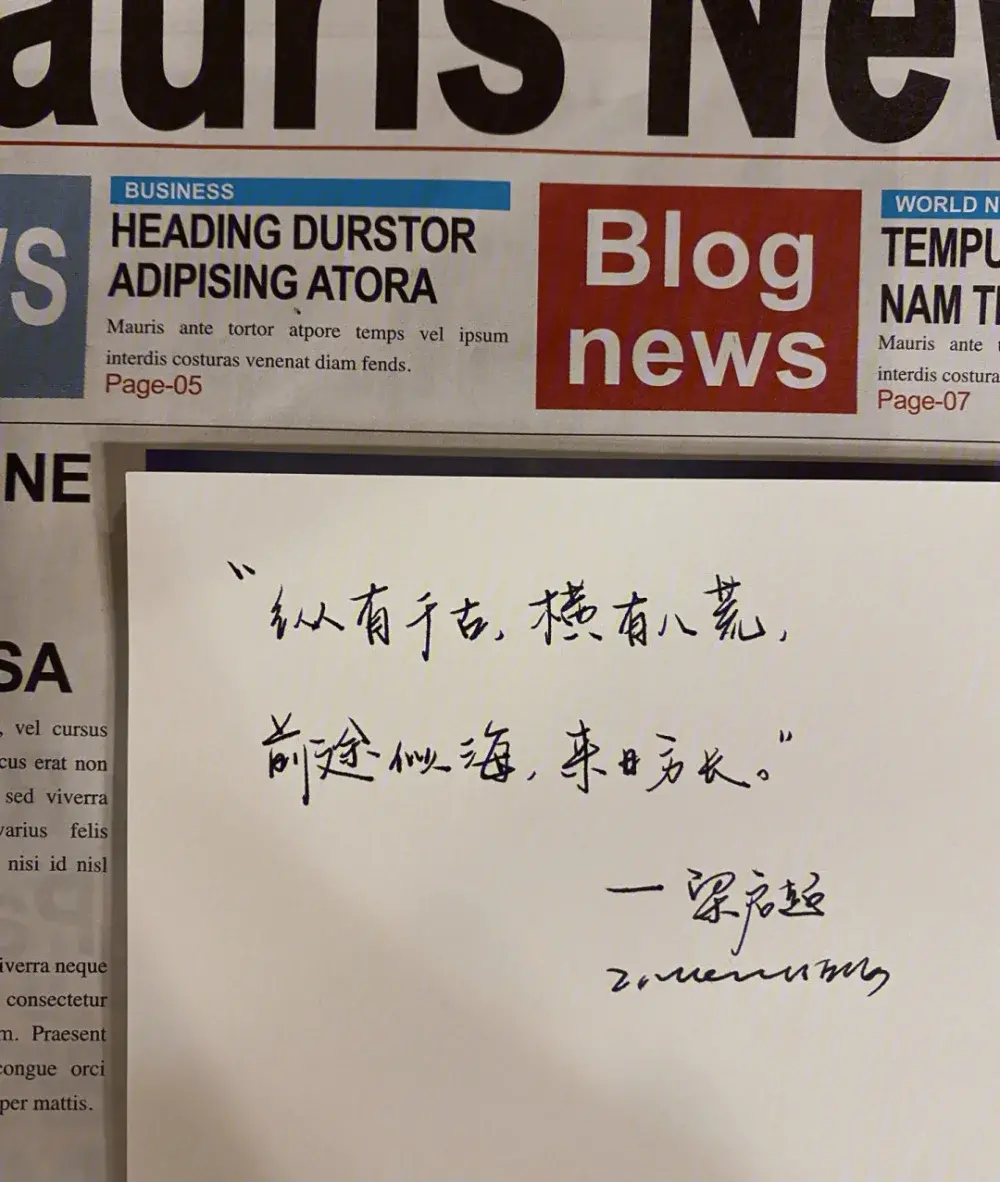 auris New
WS
BUSINESS
HEADING DURSTOR
ADIPISING ATORA
Mauris ante tortor atpore temps vel ipsum
interdis costuras venenat diam fends.
Page-05
Blog
news
WORLD N
TEMPU
NAM T
Mauris ante
interdis costura
Page-07
NE
SA
, vel cursus
cus erat non
sed viverra
varius felis
nisi id nisl
iverra neque
consectetur
m. Praesent
congue orci
per mattis.
“纵有千古,横有八荒,
前途似海,来日方长。”
—梁启超